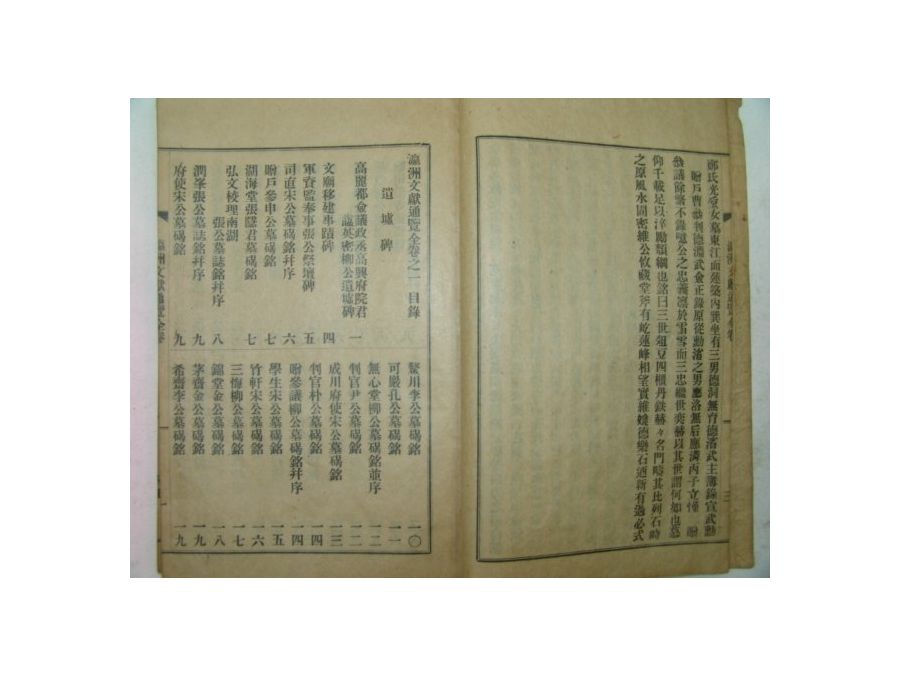 鄭氏光 女墓東江面蓮築內巽坐有三男德洞無育德濱武主簿錄宣武勳
贈戶曹 判德淵武僉正錄原從勳 之男應洛無后應 丙子立慬 贈
參議除 不錄噫公之忠義凛於霜雪而三忠繼世 赫以其世謂何如也 
仰千載足以 勵頹綱也銘曰三世俎豆四 丹鉄赫々名門時其比列石時
之原風水固密維公攸藏堂斧有屹蓮峰相望實維 德樂石 新有過必式
瀛洲文獻通覽全卷
三
瀛洲文獻通覽全卷之一 目錄
遺墟碑
高麗都僉議政丞高興府院君
諡英密柳公遺墟碑 一
文廟移建事蹟碑 四
軍資監奉事張公祭壇碑 五
司直宋公墓碣銘 六
贈戶參申公墓碣銘 七
湖海堂張隱君墓碣銘 七
弘文校理南湖
張公墓誌銘幷序 八
潤峯張公墓誌銘幷序 九
府使宋公墓碣銘 九
鰲川李公墓碣銘 一〇
可嚴孔公墓碣銘 一一
無心堂柳公墓碣銘並序 一二
判官尹公墓碣銘 一二
成川府使宋公墓碣銘 一三
判官朴公墓碣銘 一四
贈參議柳公墓碣銘幷序 一四
學生宋公墓碣銘 一五
竹軒宋公墓碣銘 一六
三悔柳公墓碣銘 一七
錦堂金公墓碣銘 一八
茅齋金公墓碣銘 一九
希齋李公墓碣銘 一九
瀛洲文獻通覽全卷
一